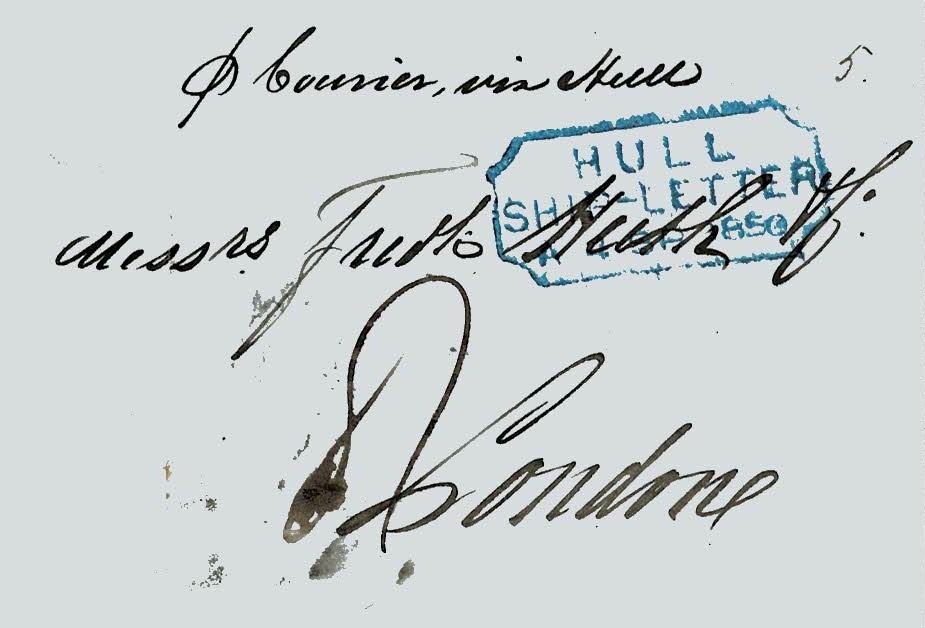 ℗ Courier, via Hull 5.
HULL
SHIP-LETTER
1850
Messrs Fredk Huth &
Londone